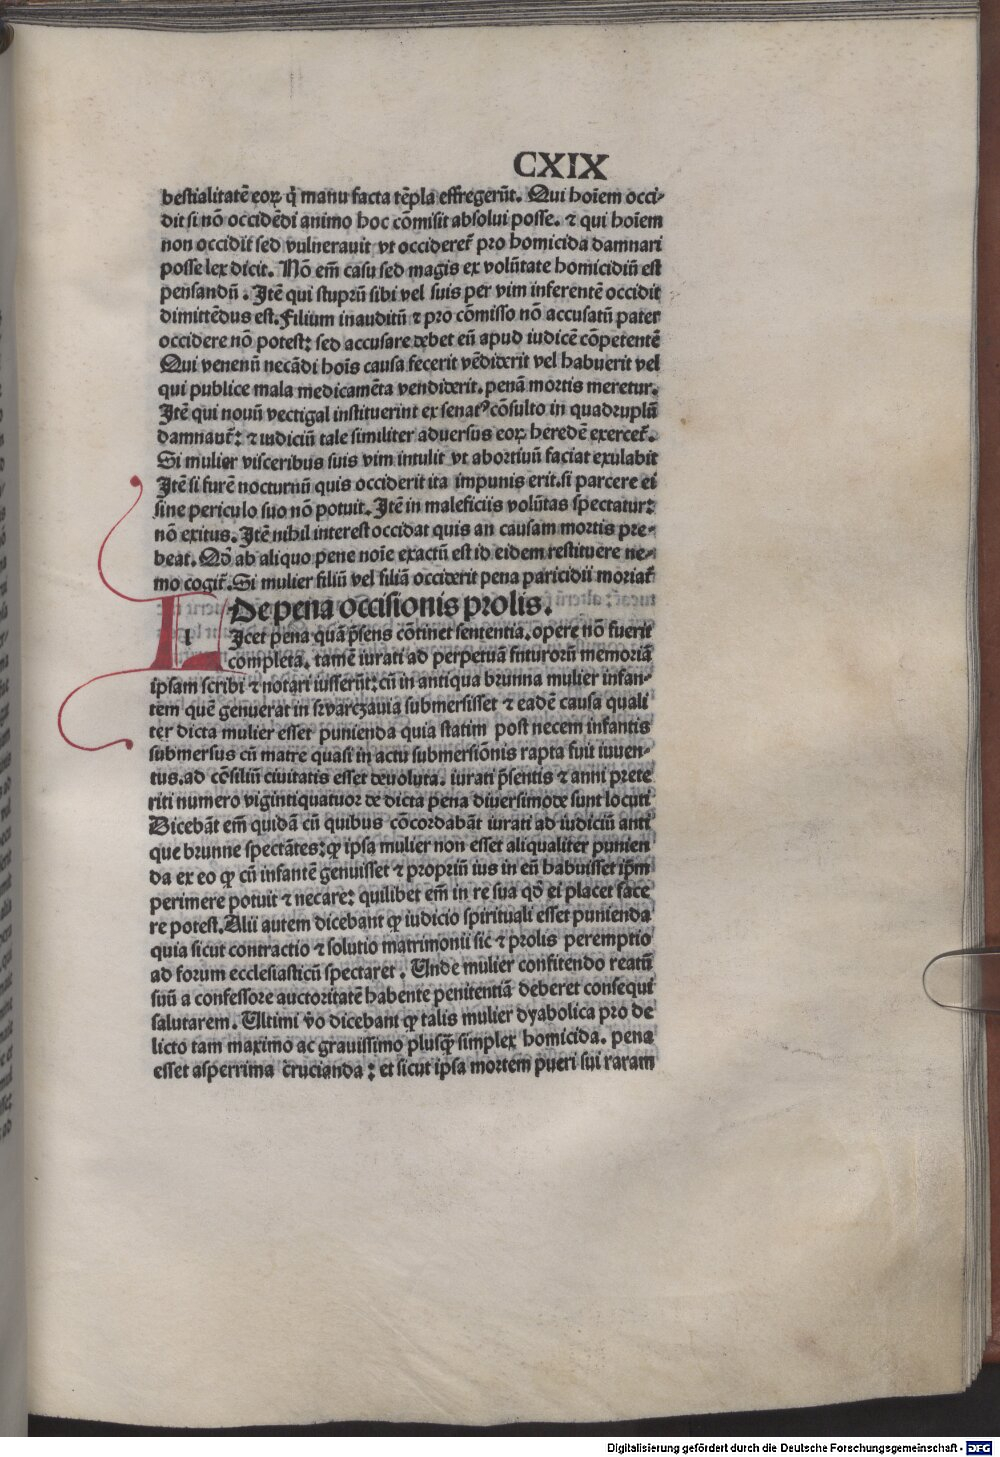 CXIX
bestialitatē eoꝝ q̇ manu facta tēpla effregerūt. Qui hoīem occi-
dit si nō occidēdi animo hoc cōmisit absolui posse. ⁊ qui hoīem
non occidit sed vulnerauit vt occideret᷑ pro homicida damnari
posse lex dicit. Nō em̄ casu sed magis ex volūtate homicidiū est
pensandū. Itē qui stuprū sibi vel suis per vim inferentē occidit
dimittēdus est. Filium inauditū ⁊ pro cōmisso nō accusatū pater
occidere nō potest: sed accusare debet eū apud iudicē cōpetentē
Qui venenū necādi hoīs causa fecerit vēdiderit vel habuerit vel
qui publice mala medicamēta vendiderit. penā mortis meretur.
Itē qui nouū vectigal instituerint ex senatꝰ cōsulto in quadruplū
damnaut᷑: ⁊ iudiciū tale similiter aduersus eoꝝ heredē exercet᷑.
Si mulier visceribus suis vim intulit vt abortiuū faciat exulabit
Itē si furē nocturnū quis occiderit ita impunis erit. si parcere ei
sine periculo suo nō potuit. Itē in maleficiis volūtas spectatur:
nō exitus. Itē nihil interest occidat quis an causam mortis pre-
beat. Qd̄ ab aliquo pene noīe exactū est id eidem restituere ne-
mo cogit᷑. Si mulier filiū vel filiā occiderit pena paricidii moriat᷑
De pena occisionis prolis.
LIcet pena quā p̄sens cōtinet sententia. opere nō fuerit
completa. tamē iurati ad perpetuā futurorū memoriā
ipsam scribi ⁊ notari iusserūt: cū in antiqua brunna mulier infan-
tem quē genuerat in srvarczauia submersisset ⁊ eadē causa quali
ter dicta mulier esset punienda quia statim post necem infantis
submersus cū matre quasi in actu submersiōnis rapta fuit iuuen-
tus. ad cōsiliū ciuitatis esset deuoluta. iurati p̄sentis ⁊ anni prete
riti numero vigintiquatuor de dicta pena diuersimode sunt locuti
Dicebāt em̄ quidā cū quibus cōcordabāt iurati ad iudiciū anti
que brunne spectātes: ꝙ ipsa mulier non esset aliqualiter punien
da ex eo ꝙ cū infantē genuisset ⁊ propriū ius in eū habuisset ip̄m
perimere potuit ⁊ necare: quilibet em̄ in re sua qd̄ ei placet face
re potest. Alii autem dicebant ꝙ iudicio spirituali esset punienda
quia sicut contractio ⁊ solutio matrimonii sic ⁊ prolis peremptio
ad forum ecclesiasticū spectaret. Unde mulier confitendo reatū
suū a confessore auctoritatē habente penitentiā deberet consequi
salutarem. Ultimi v̄o dicebant ꝙ talis mulier dyabolica pro de
licto tam maximo ac grauissimo plusꝙ̄ simplex homicida. pena
esset asperrima crucianda: et sicut ipsa mortem pueri sui raram
Digitalisierung gefördert durch die Deutsche Forschungsgemeinschaft - DFG